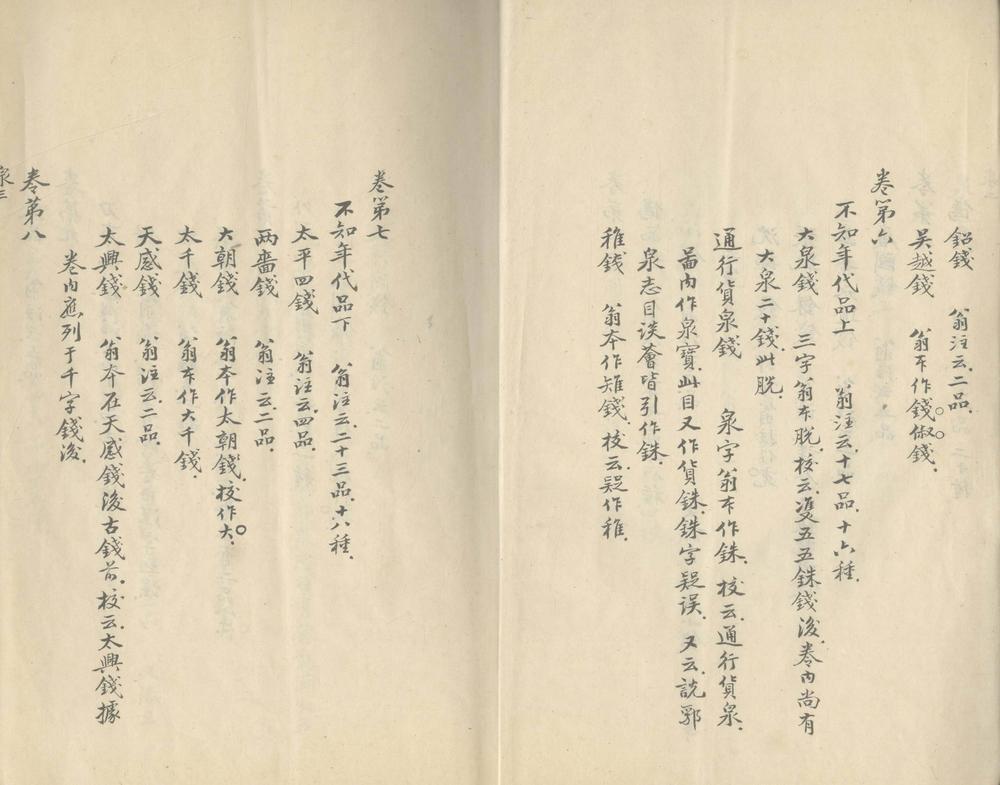 鉛錢　翁注云.二品.
吳越錢　翁本作錢俶錢.
卷第六
不知年代品上　翁注云.十七品.十六種.
大泉錢　三字翁本脫.校云.雙五五銖錢後.卷內尚有
大泉二十錢.此脫.
通行貨泉錢　泉字翁本作銖.校云.通行貨泉.
啚內作泉寶.此目又作貨銖.銖字疑误.又云.說郛
泉志目談薈皆引作銖.
稚錢　翁本作雉錢.校云.疑作稚.
卷第七
不知年代品下　翁注云.二十三品.十八種.
太平四錢　翁注云.四品.
两啚錢　翁注云.二品.
大朝錢　翁本作太朝錢.校作大.
太千錢　翁本作大千錢.
天感錢　翁注云.二品.
太興錢　翁本在天感錢後古錢前.校云.太興錢據
卷內應列于千字錢後.
卷第八
泉三